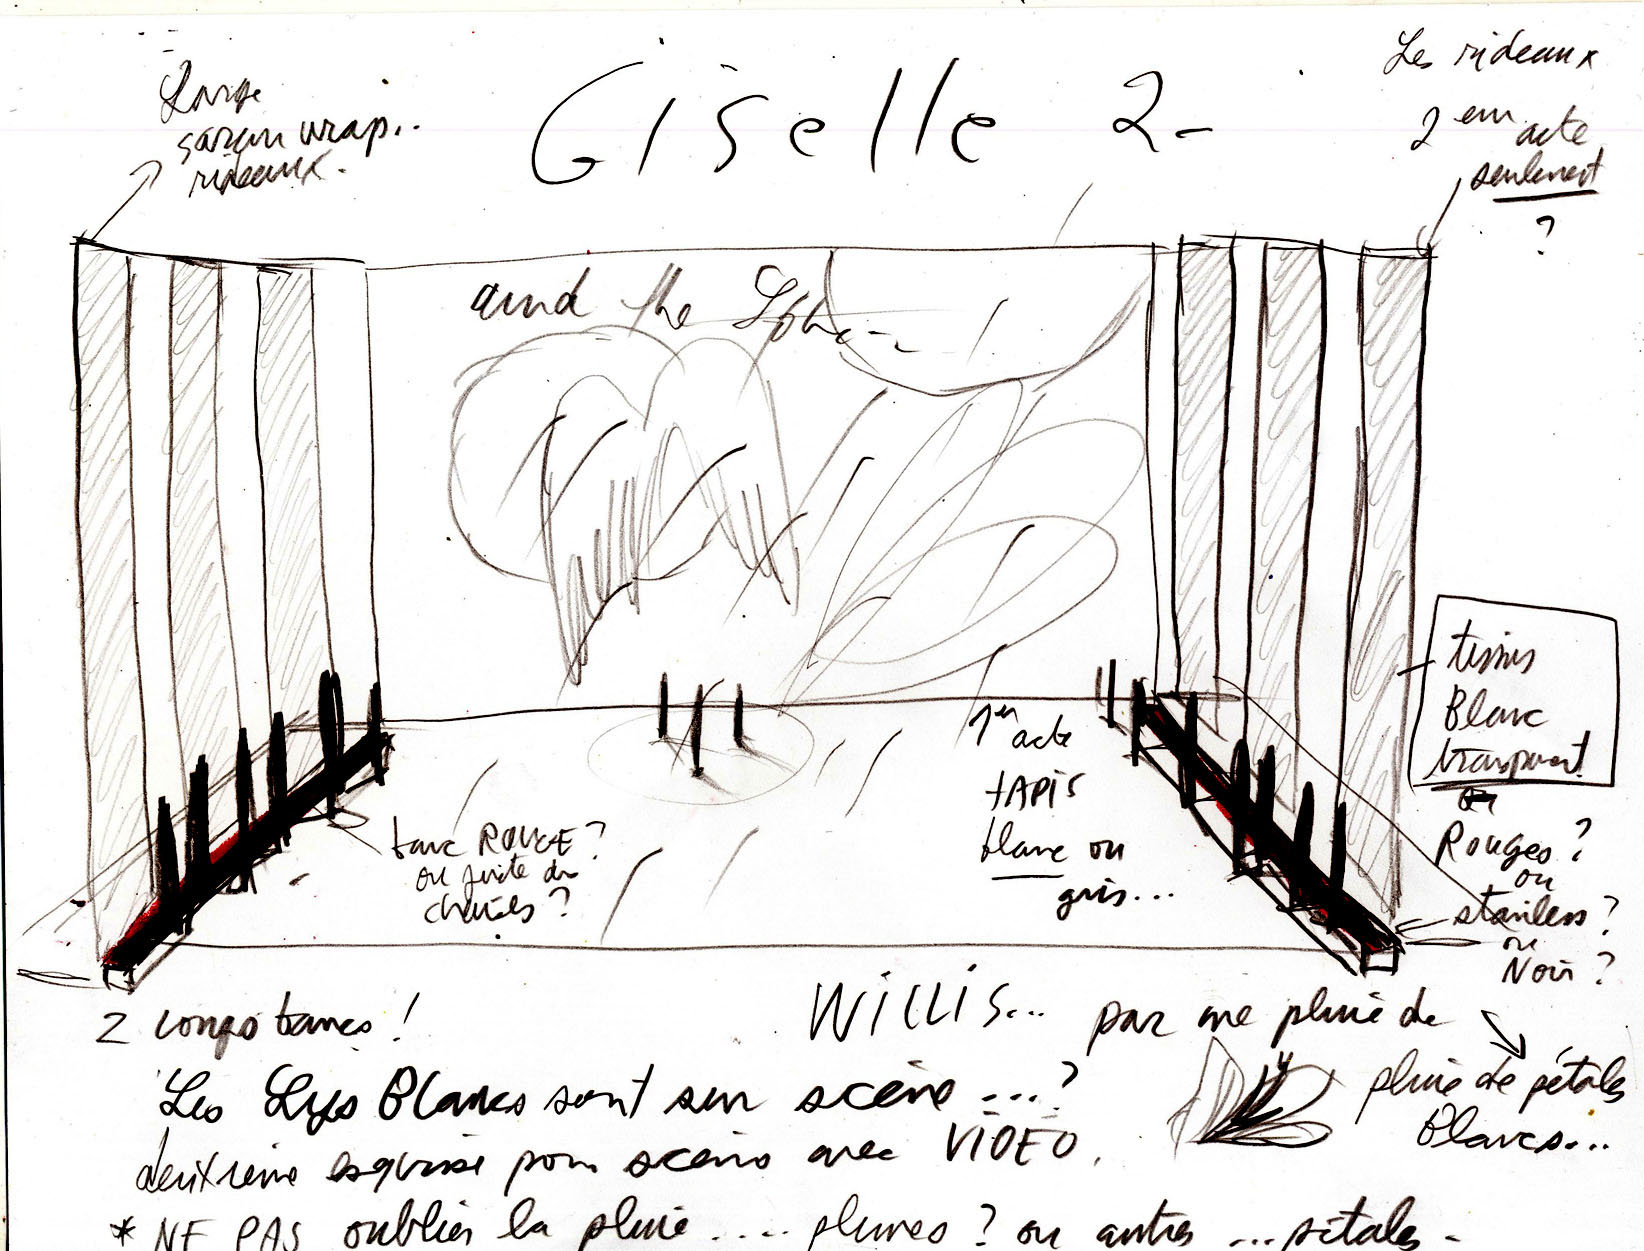 Giselle 2-
Large
saran wrap..
rideaux.
Les rideaux
2em acte
seulement
?
and the
tissus
Blanc
transparent
ou
Rouges ?
ou
stainless ?
ou
Noir ?
1er
acte
TAPIS
blanc ou
gris...
banc ROUGE ?
ou suite de
chaises ?
2 longs bancs !
WILLIS... par une pluie de
pluie de pétales
Blancs...
Les Lys Blancs sont sur scène ...?
deuxième esquisse pour scène avec VIDEO.
* NE PAS oublier la pluie .... plumes ? ou autres ... pétales -